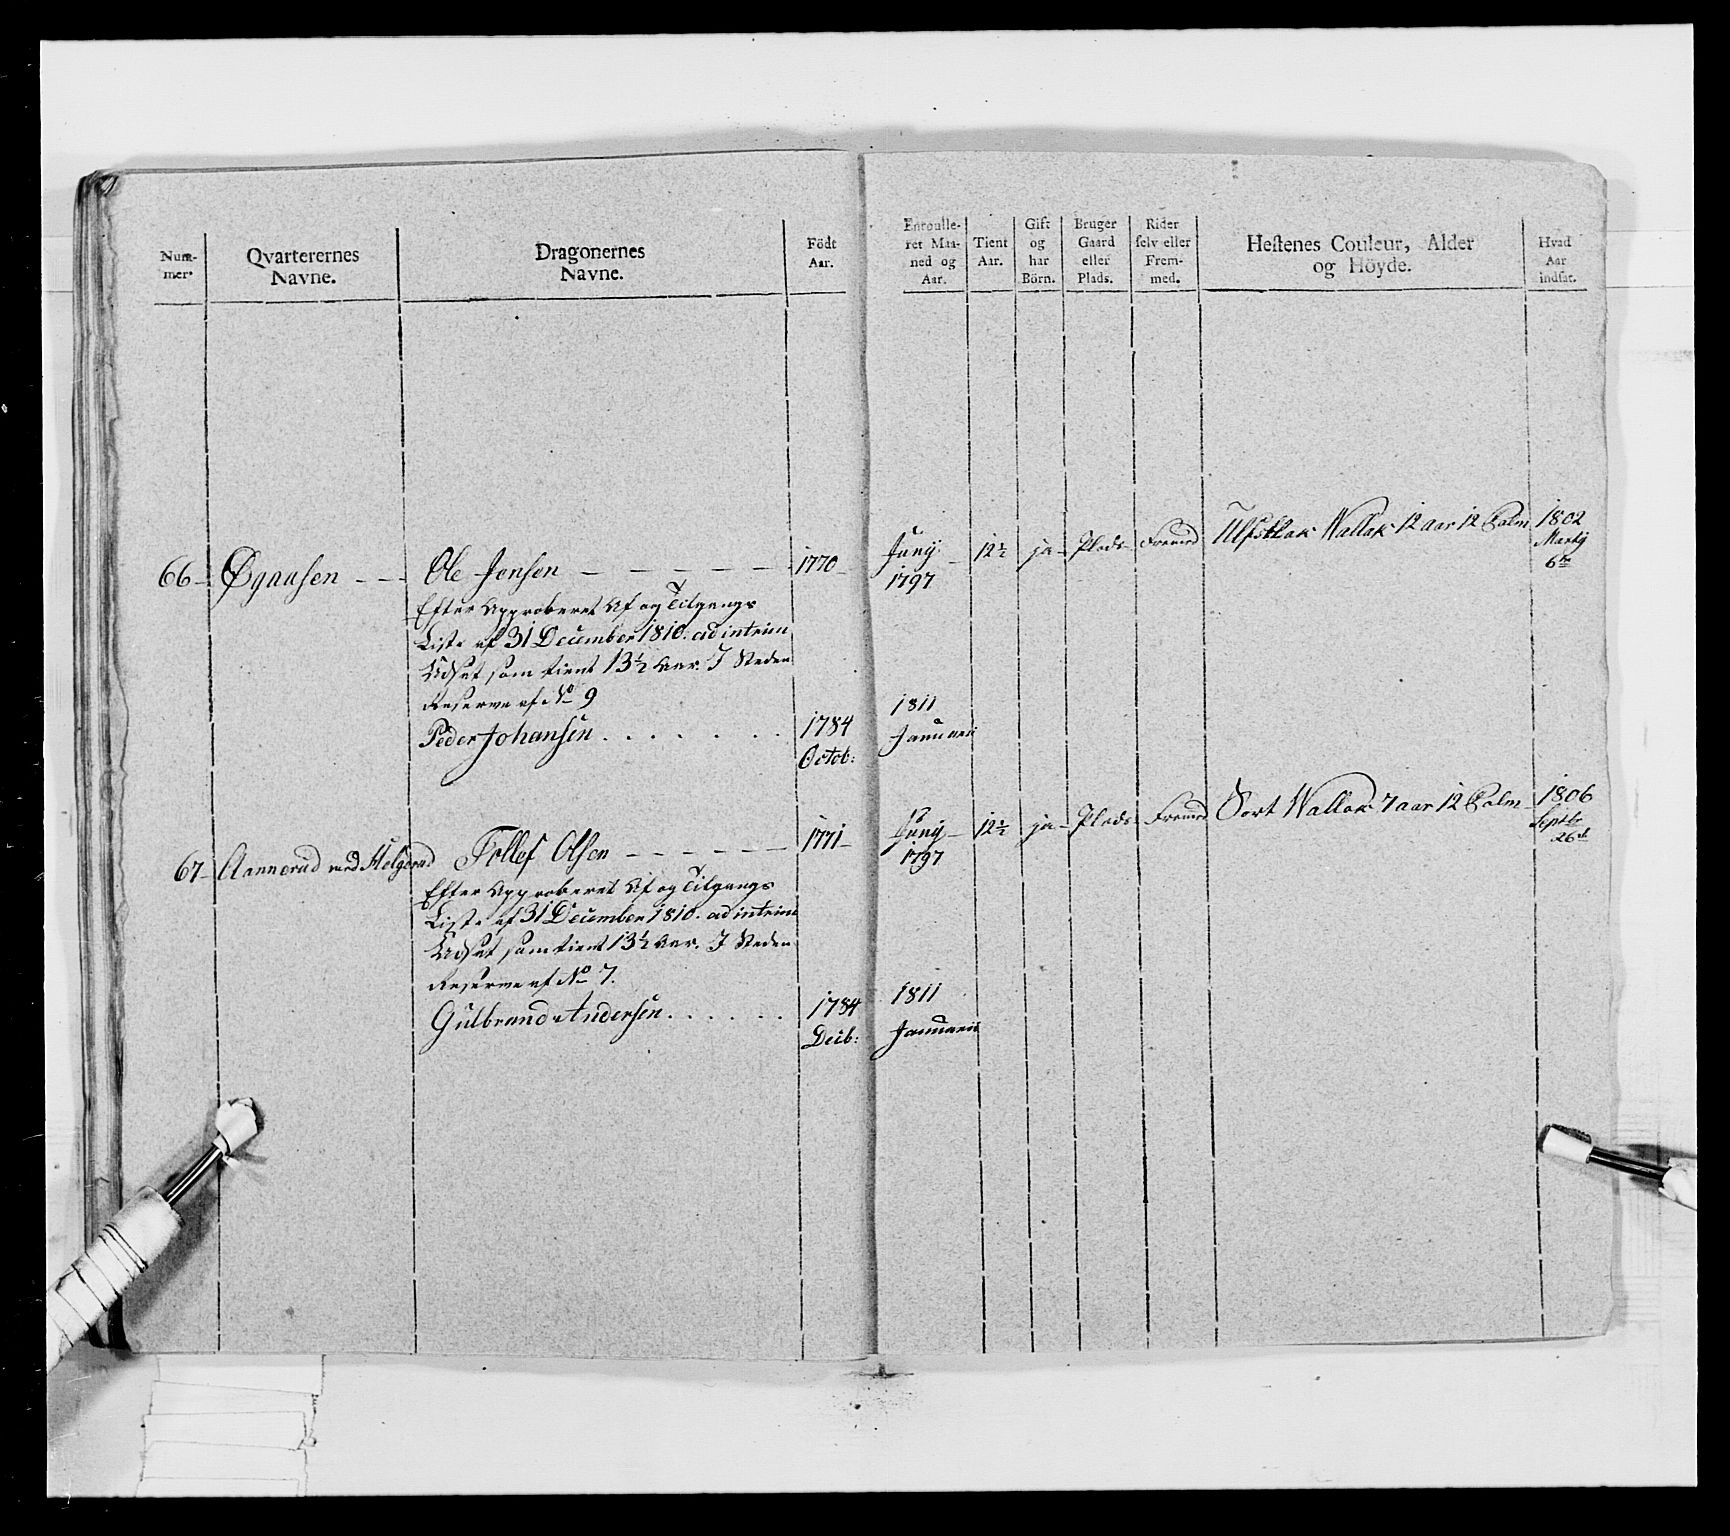 Num-
mer.
Qvarterernes
Navne.
Dragonernes
Navne.
Födt
Aar.
Enroulle-
ret Maa-
ned og
Aar.
Tient
Aar.
Gift
og
har
Börn.
Bruger
Gaard
eller
Plads.
Rider
selv eller
Frem-
med.
Hestenes Couleur, Alder
og Höyde.
Hvad
Aar
indsat.
66 Øgausen Ole Jensen 1770 Junij 12½ ja Plads Fremed Ulfsblak Wallak 12 aar 12 Palm 1802
1797 Martij
6te
Efter Approberet Af og Tilgangs
Liste af 31 December 1810. ad interim
Udsat som tient 13½ Aar. I Steden
Reserve af No 9
Peder Johansen 1784 1811
Octob: Januarii
67 Aannerud med Helgerud Tollef Olsen 1771 Junij 12½ ja Plads Fremed Sort Wallak 7 aar 12 Palm 1806
1797 Septbr
26de
Efter Approberet Af og Tilgangs
Liste af 31 December 1810. ad interim
Udsat som tient 13½ Aar. I Steden
Reserve af No 7.
Gulbrand Andersen 1784 1811
Decb: Januarii